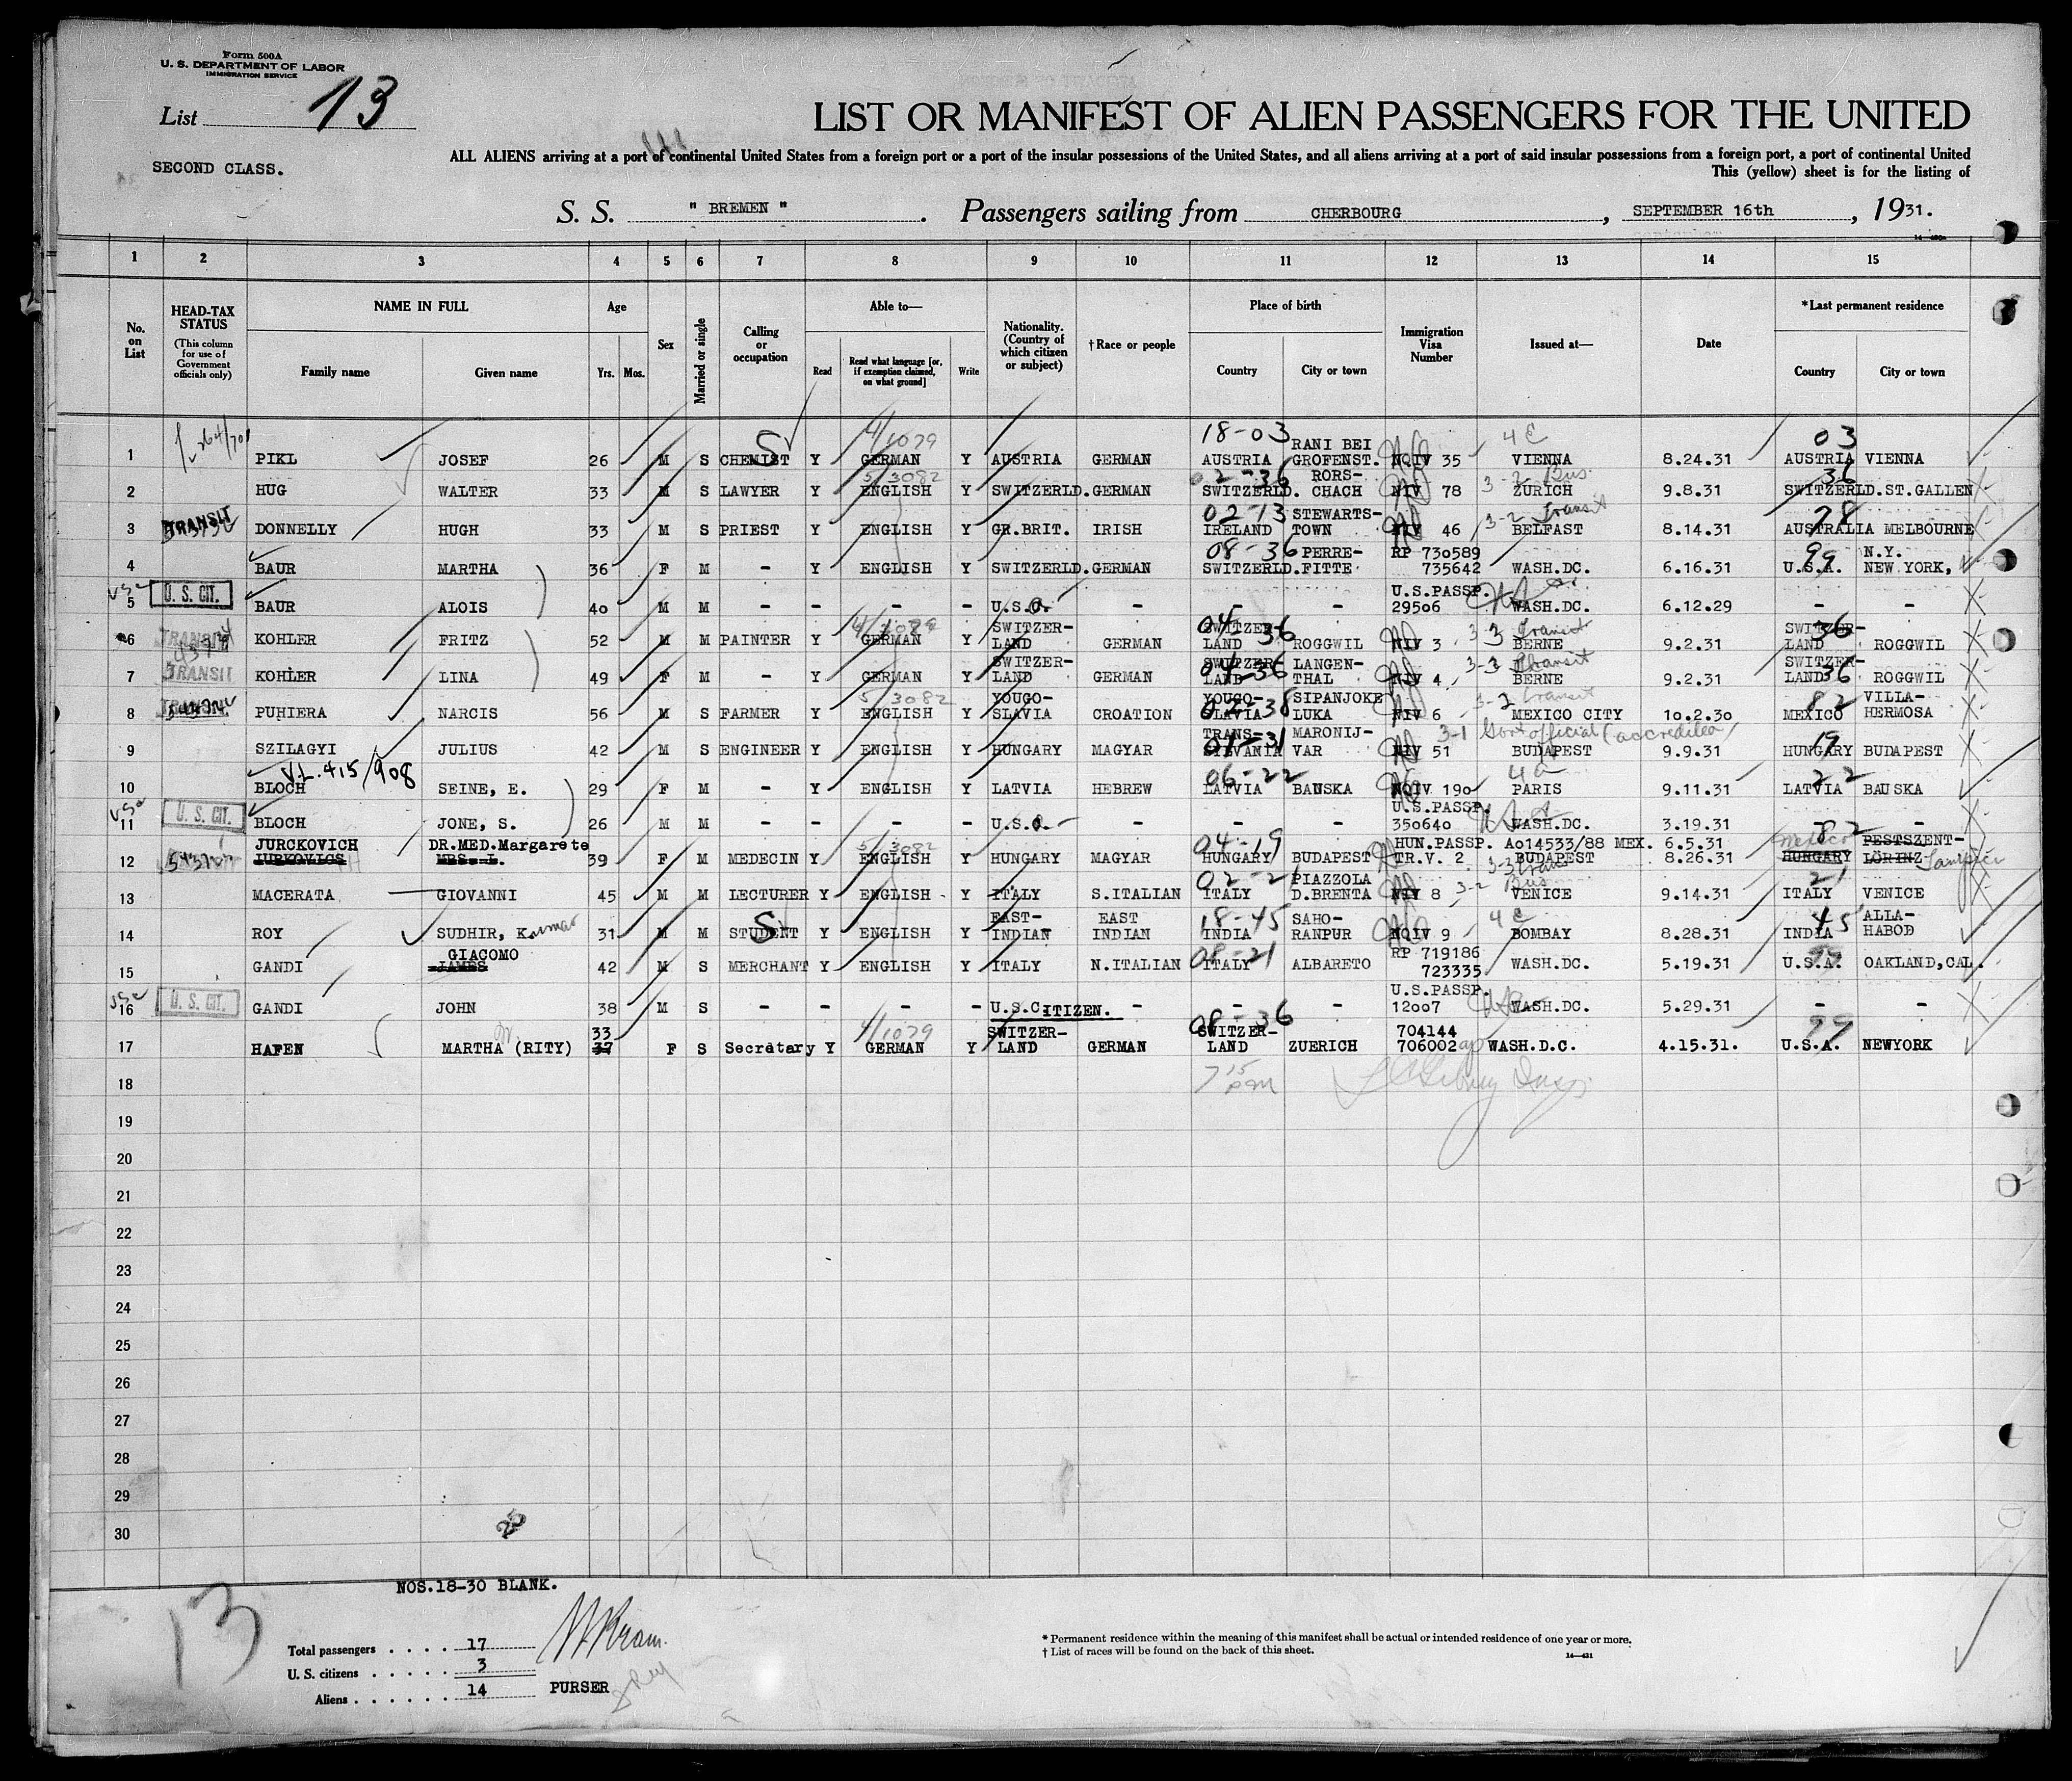 Form 500A
U. S. DEPARTMENT OF LABOR
IMMIGRATION SERVICE
List 13
LIST OR MANIFEST OF ALIEN PASSENGERS FOR THE UNITED
SECOND CLASS.
ALL ALIENS arriving at a port of continental United States from a foreign port or a port of the insular possessions of the United States, and all aliens arriving at a port of said insular possessions from a foreign port, a port of continental United
This (yellow) sheet is for the listing of
S. S. " BREMEN " . Passengers sailing from CHERBOURG , SEPTEMBER 16th , 1931.
1 2 3 4 5 6 7 8 9 10 11 12 13 14 15
No. on List
HEAD-TAX STATUS
(This column for use of Government officials only)
NAME IN FULL
Family name Given name
Age
Yrs. Mos.
Sex
Married or single
Calling or occupation
Able to—
Read
Read what language [or, if exemption claimed, on what ground]
Write
Nationality. (Country of which citizen or subject)
† Race or people
Place of birth
Country City or town
Immigration Visa Number
Issued at—
Date
* Last permanent residence
Country City or town
4/1079 18-03 RANI BEI 4 C 03
1 PIKL JOSEF 26 M S CHEMIST S Y GERMAN Y AUSTRIA GERMAN AUSTRIA GROFENST. NQIV 35 VIENNA 8.24.31 AUSTRIA VIENNA
5/3082 02-36 RORS- 3-2 Bus. 36
2 HUG WALTER 33 M S LAWYER Y ENGLISH Y SWITZERLD. GERMAN SWITZERLD. CHACH NIV 78 ZURICH 9.8.31 SWITZERLD. ST.GALLEN
TRANSIT 02-13 STEWARTS- 3-2 Transit 78
3 DONNELLY HUGH 33 M S PRIEST Y ENGLISH Y GR.BRIT. IRISH IRELAND TOWN NIV 46 BELFAST 8.14.31 AUSTRALIA MELBOURNE
08-36 PERRE- RP 730589 99 N.Y.
4 BAUR MARTHA 36 F M - Y ENGLISH Y SWITZERLD. GERMAN SWITZERLD. FITTE 735642 WASH.DC. 6.16.31 U.S.A. NEW YORK,
U. S. CIT. U.S.PASSP.
5 BAUR ALOIS 40 M M - - - - U.S.A. - - - 29506 WASH.DC. 6.12.29 - -
TRANSIT SWITZER- 04-36 SWITZER- 3-3 Transit SWITZER- 36
6 KOHLER FRITZ 52 M M PAINTER Y GERMAN Y LAND GERMAN LAND ROGGWIL NIV 3 BERNE 9.2.31 LAND ROGGWIL
TRANSIT SWITZER- 04-36 SWITZER- LANGEN- 3-3 Transit SWITZER- 36
7 KOHLER LINA 49 F M - Y GERMAN Y LAND GERMAN LAND THAL NIV 4 BERNE 9.2.31 LAND ROGGWIL
TRANSIT 5/3082 YOUGO- 02-38 YOUGO- SIPANJOKE 3-2 transit 82 VILLA-
8 PUHIERA NARCIS 56 M S FARMER Y ENGLISH Y SLAVIA CROATION SLAVIA LUKA NIV 6 MEXICO CITY 10.2.30 MEXICO HERMOSA
01-31 TRANS- MARONIJ- 3-1 Govt official (accredited) 19
9 SZILAGYI JULIUS 42 M S ENGINEER Y ENGLISH Y HUNGARY MAGYAR SYLVANIA VAR NIV 51 BUDAPEST 9.9.31 HUNGARY BUDAPEST
V.L. 415/908 06-22 4 a 22
10 BLOCH SEINE, E. 29 F M - Y ENGLISH Y LATVIA HEBREW LATVIA BAUSKA NQIV 190 PARIS 9.11.31 LATVIA BAUSKA
U. S. CIT. U.S.PASSP.
11 BLOCH JONE, S. 26 M M - - - - U.S.A. - - - 350640 WASH.DC. 3.19.31 - -
JURCKOVICH DR.MED.Margarete 5/3082 04-19 HUN.PASSP. Ao14533/88 MEX. 6.5.31 Mexico 82 PESTSZENT-
12 JURKOVICS MRS. I. 39 F M MEDECIN Y ENGLISH Y HUNGARY MAGYAR HUNGARY BUDAPEST TR.V. 2 BUDAPEST 8.26.31 HUNGARY LÖRINZ Tampico
02-21 PIAZZOLA 3-2 Bus 21
13 MACERATA GIOVANNI 45 M M LECTURER Y ENGLISH Y ITALY S.ITALIAN ITALY D.BRENTA NIV 8 VENICE 9.14.31 ITALY VENICE
EAST- EAST 18-45 SAHO- 4 E 45 ALLA-
14 ROY SUDHIR, Kumar 31 M M STUDENT S Y ENGLISH Y INDIAN INDIAN INDIA RANPUR NQIV 9 BOMBAY 8.28.31 INDIA HABOD
GIACOMO 08-21 RP 719186 99
15 GANDI JAMES 42 M S MERCHANT Y ENGLISH Y ITALY N.ITALIAN ITALY ALBARETO 723335 WASH.DC. 5.19.31 U.S.A. OAKLAND,CAL.
U. S. CIT. U.S.PASSP.
16 GANDI JOHN 38 M S - - - - U.S.CITIZEN. - - - 12007 WASH.DC. 5.29.31 - -
33 4/1079 SWITZER- 08-36 SWITZER- 704144 99
17 HAFEN MARTHA (RITY) 37 F S Secretary Y GERMAN Y LAND GERMAN LAND ZUERICH 706002 WASH.D.C. 4.15.31. U.S.A. NEWYORK
18 7 15 pm
19
20
21
22
23
24
25
26
27
28
29
30
NOS.18-30 BLANK.
13
Total passengers . . . . 17
U. S. citizens . . . . . 3
Aliens . . . . . . 14 PURSER
* Permanent residence within the meaning of this manifest shall be actual or intended residence of one year or more.
† List of races will be found on the back of this sheet.
14—431